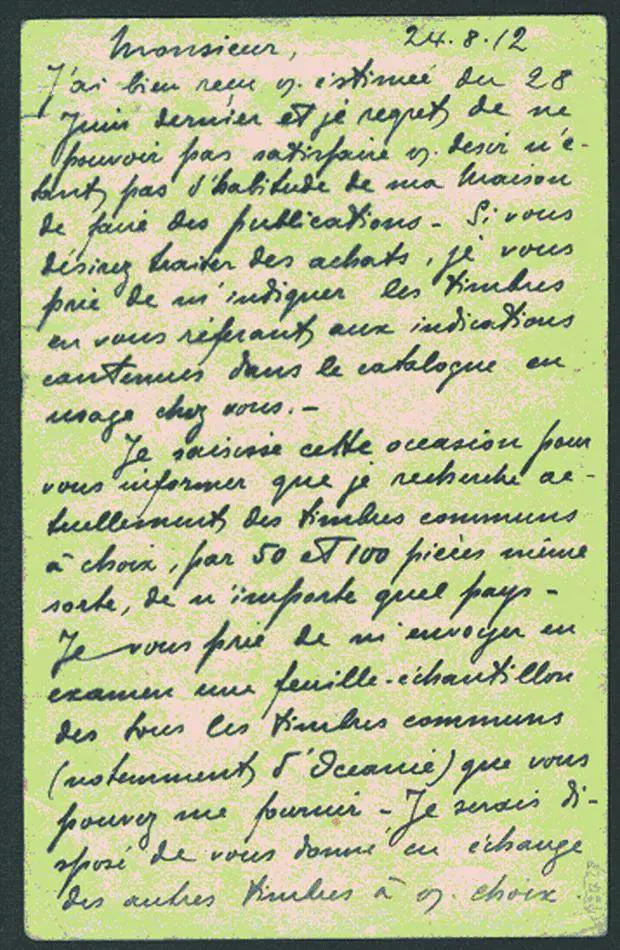 Monsieur, 24.8.12
J'ai bien reçu v. estimée du 28
Juin dernier et je regret de ne
pouvoir pas satisfaire v. desir n'é-
tant pas d'habitude de ma Maison
de faire des publications - Si vous
désirez traiter des achats, je vous
prie de m'indiquer les timbres
en vous référant aux indications
contenues dans le catalogue en
usage chez vous. -
Je saisisse cette occasion pour
vous informer que je recherche ac-
tuellement des timbres communs
à choix, par 50 et 100 pièces même
sorte, de n'importe quel pays -
Je vous prie de m'envoyer en
examen une feuille-échantillon
des tous les timbres communs
(notemment d'Oceanie) que vous
pouvez me fournir - Je serais di-
sposé de vous donne en échange
des autres timbres à v. choix